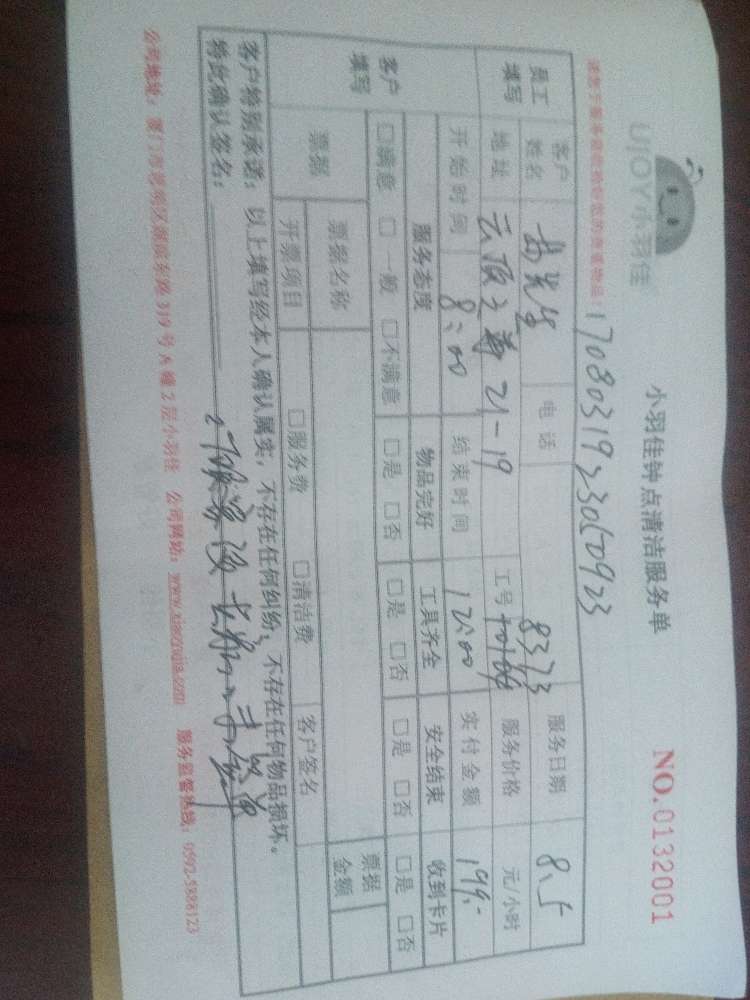 UJOY小羽佳
小羽佳钟点清洁服务单 NO.0132001
1708031923050923
员工填写 客户姓名 先生 电话 服务日期 8.5
地址 云顶之尊 21-19 工号 8373 服务价格 元/小时
开始时间 8:00 结束时间 12:00 实付金额 199.-
客户填写 服务态度 物品完好 工具齐全 安全结束 收到卡片
□满意 □一般 □不满意 □是 □否 □是 □否 □是 □否 □是 □否
票据 票据名称 票据金额
开票项目 □服务费 □清洁费 客户签名
客户特别承诺：以上填写经本人确认属实，不存在任何纠纷，不存在任何物品损坏。
特此确认签名：
公司地址：厦门市思明区湖滨东路319号A幢2层小羽佳 公司网站：www.xiaoyujia.com 服务监督热线：0592-5888123